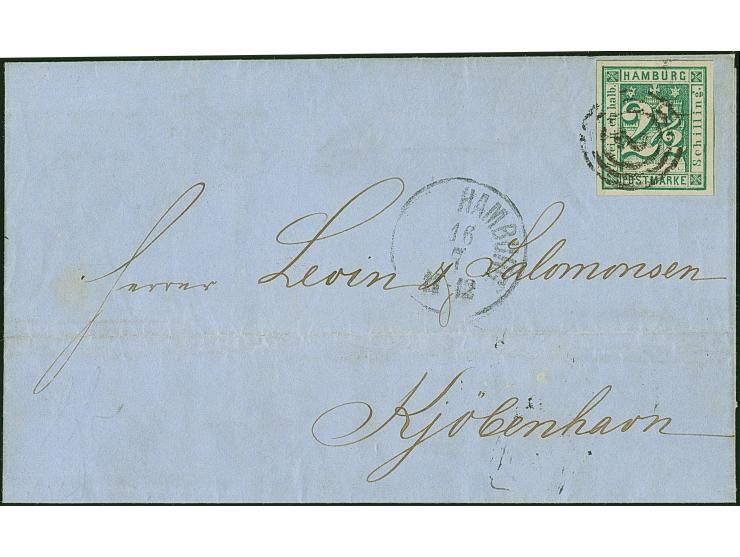 HAMBURG
Schilling.
2½
POSTMARKE
HAMBURG
16
7
12
Herren Levin & Salomonsen
Kjöbenhavn